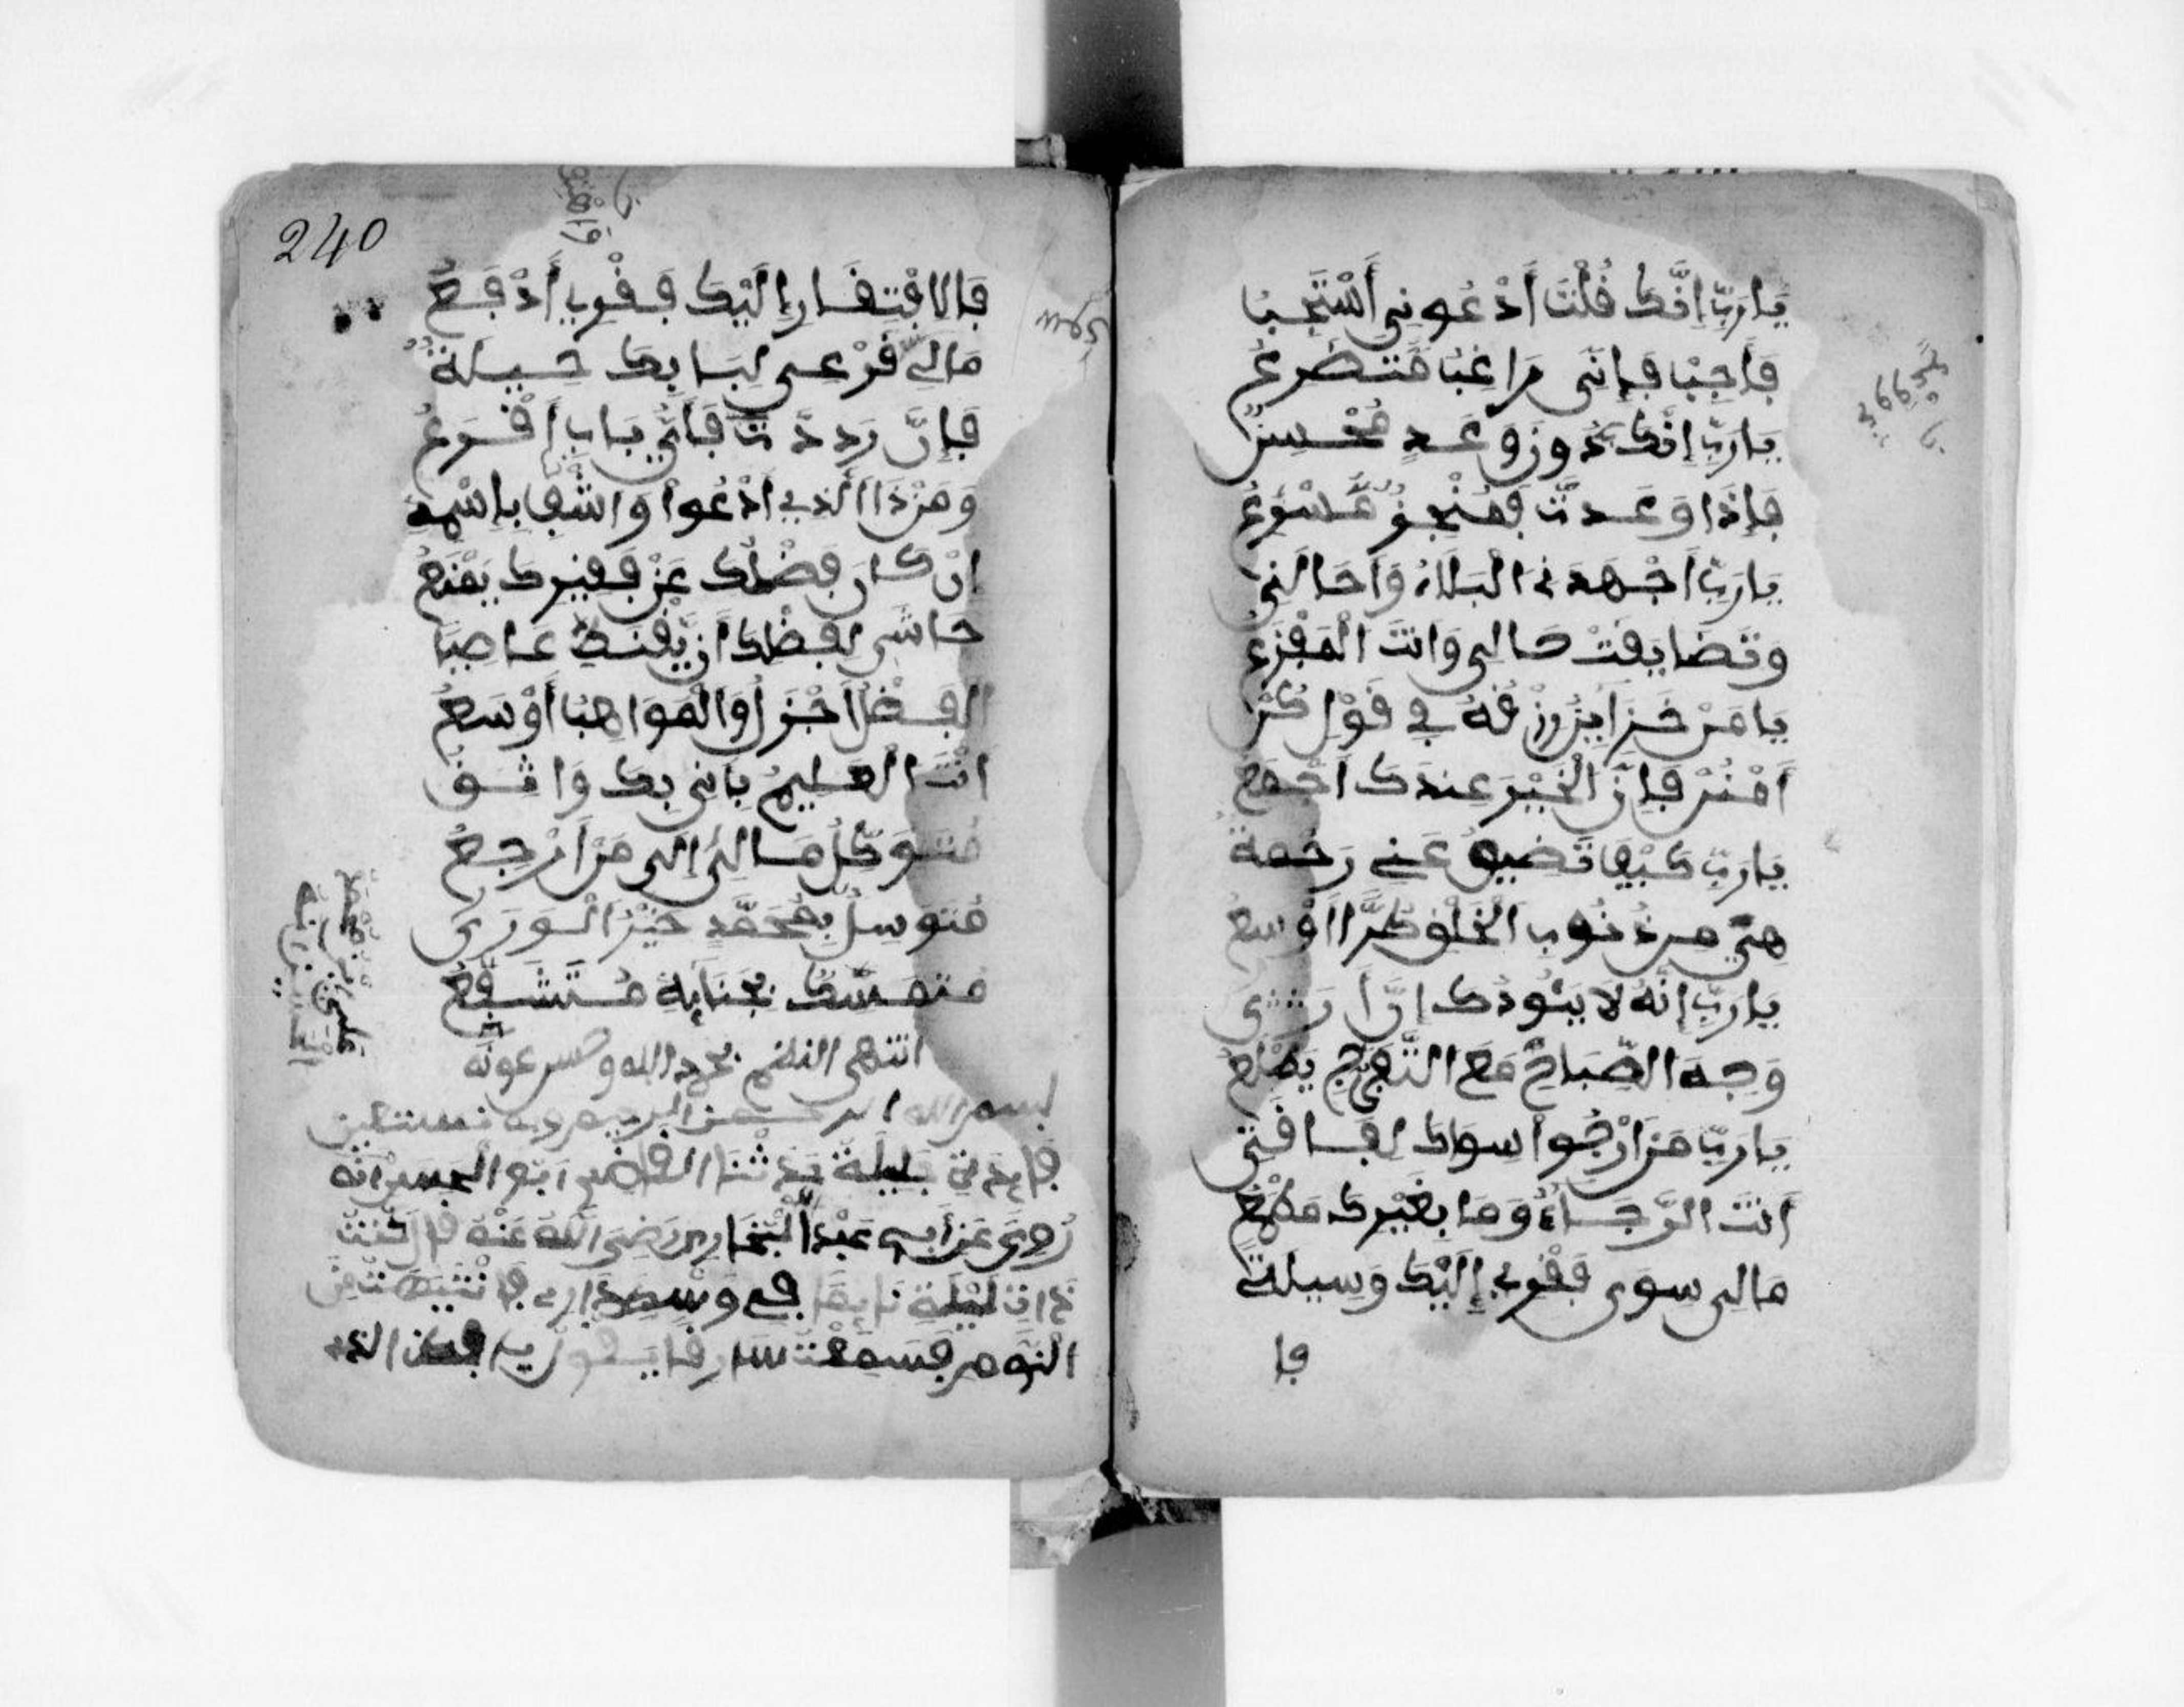 يَارَبِّ إِنَّكَ قُلْتَ أَدْعُونِي أَسْتَجِبُ
فَأَجِبْ فَإِنَّنِي رَاغِبٌ مُتَضَرِّعُ
يَارَبِّ إِنَّكَ وَعَدٍ مُحْسِنٌ
فَإِذَا وَعَدْتَ فَمُنْجِزٌ
يَارَبِّ أَجْهَدَنِي الْبَلَاءُ وَأَحَالَنِي
وَتَضَايَقَتْ حَالِي وَأَنْتَ الْمَفْزَعُ
يَا مَنْ خَزَائِنُ رِزْقِهِ فِي قَوْلِ كُنْ
أُمْنُنْ فَإِنَّ الْخَيْرَ عِنْدَكَ أَجْمَعُ
يَارَبِّ كَيْفَ تَضِيقُ عَنِّي رَحْمَةٌ
هِيَ مِن ذُنُوبِ الْخَلْقِ طُرًّا أَوْسَعُ
يَارَبِّ إِنَّهُ لَا يَئُودُكَ إِنْ أَرَى
وَجْهَ الصَّبَاحِ مَعَ التَّفَرُّجِ يَطْلَعُ
يَارَبِّ مَنْ أَرْجُوا سِوَاكَ لِفَاقَتِي
أَنْتَ الرَّجَاءُ وَمَا بِغَيْرِكَ مَطْمَعُ
مَالِي سِوَى فَقْرِي إِلَيْكَ وَسِيلَةٌ
فبا
240
فَبِالِافْتِقَارِ إِلَيْكَ فَقْرِي أَدْفَعُ
مَالِي قَرْعِي لِبَابِكَ حِيلَةٌ
فَإِنْ رَدَدْتَ فَأَيَّ بَابٍ أَقْرَعُ
وَمَنْ ذَا الَّذِي أَدْعُوا وَأَهْتِفُ بِإِسْمِهِ
إِنْ كَانَ فَضْلُكَ عَنْ فَقِيرِكَ يُمْنَعُ
حَاشَى لِفَضْلِكَ أَنْ يُقَنِّطَ عَاصِيًا
الْفَضْلُ أَجْزَلُ وَالْمَوَاهِبُ أَوْسَعُ
أَنْتَ الْعَلِيمُ بِأَنِّي بِكَ وَاثِقٌ
مُتَوَكِّلٌ مَالِي إِلَى مَنْ أَرْجِعُ
مُتَوَسِّلٌ بِمُحَمَّدٍ خَيْرِ الْوَرَى
مُتَمَسِّكٌ بِجَنَابِهِ مُتَشَفِّعُ
انتهى النظم بحمد الله وحسن عونه
بسم الله الرحمن الرحيم وبه نستعين
فايدة جليلة حدثنا القاضي ابو الحسن انه
رُوِيَ عَنْ أَبِي عَبْدِ الْبُخَارِي رَضِيَ اللَّهُ عَنْهُ قَالَ كُنْتُ
ذَاتَ لَيْلَةٍ نَايِمًا فِي وَسْطِ دَارِي فَانْتَبَهْتُ مِنَ
النَّوْمِ فَسَمِعْتُ سَارِقًا يَقُولُ